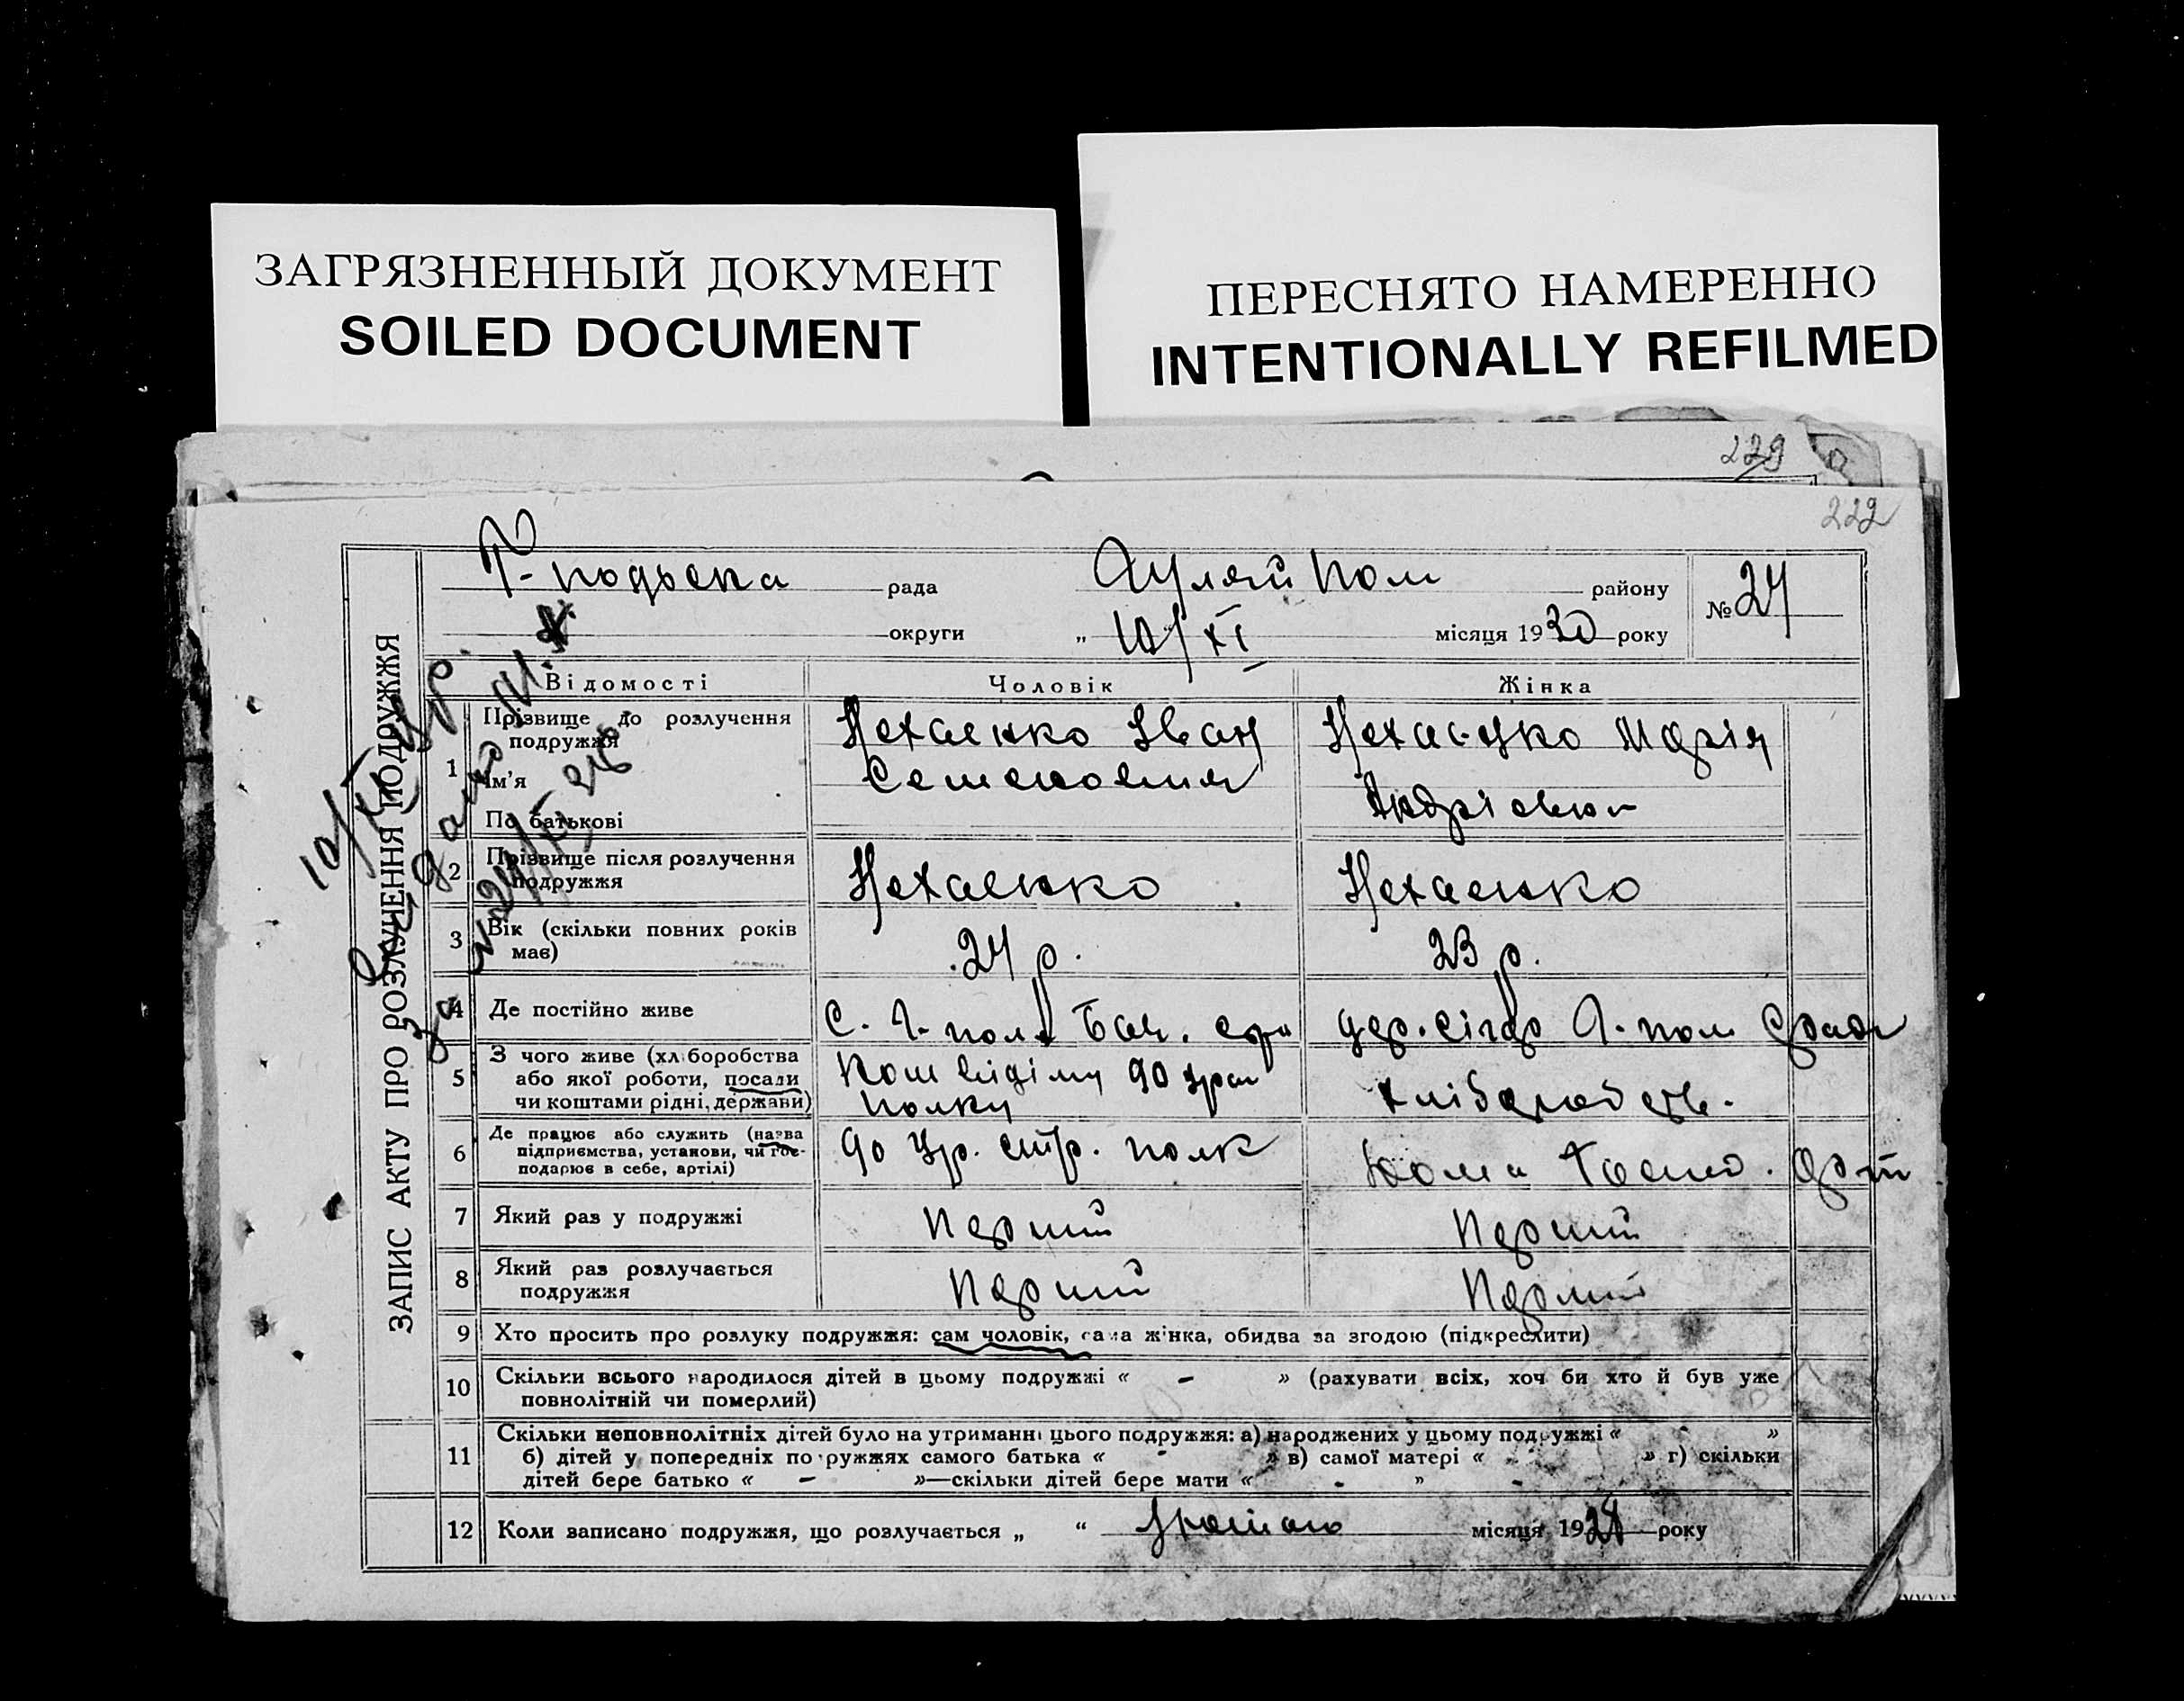 ЗАГРЯЗНЕННЫЙ ДОКУМЕНТ
SOILED DOCUMENT
ПЕРЕСНЯТО НАМЕРЕННО
INTENTIONALLY REFILMED
229
222
ЗАПИС АКТУ ПРО РОЗЛУЧЕННЯ ПОДРУЖЖЯ
рада Гуляй Пол району № 24
округи „ 10/XI місяця 1930 року
Відомості Чоловік Жінка
1 Прізвище до розлучення подружжя Нехаенко Іван Нехаенко Марія
Ім'я Семенович
По батькові Андріевна
2 Прізвище після розлучення подружжя Нехаенко Нехаенко
3 Вік (скільки повних років має) 24 р. 23 р.
4 Де постійно живе С. Г. пол
5 З чого живе (хліборобства
або якої роботи, посади 90
чи коштами рідні, держави) полку хліборобств.
6 Де працює або служить (назва 90 стр. полк
підприємства, установи, чи гос-
подарює в себе, артілі)
7 Який раз у подружжі Перший Перший
8 Який раз розлучається подружжя Перший Перший
9 Хто просить про розлуку подружжя: сам чоловік, сама жінка, обидва за згодою (підкреслити)
10 Скільки всього народилося дітей в цьому подружжі « - » (рахувати всіх, хоч би хто й був уже
повнолітній чи померлий)
11 Скільки неповнолітніх дітей було на утриманні цього подружжя: а) народжених у цьому подружжі « - »
б) дітей у попередніх подружжях самого батька « - » в) самої матері « - » г) скільки
дітей бере батько « - »—скільки дітей бере мати « - »
12 Коли записано подружжя, що розлучається „ “ місяця 1928 року